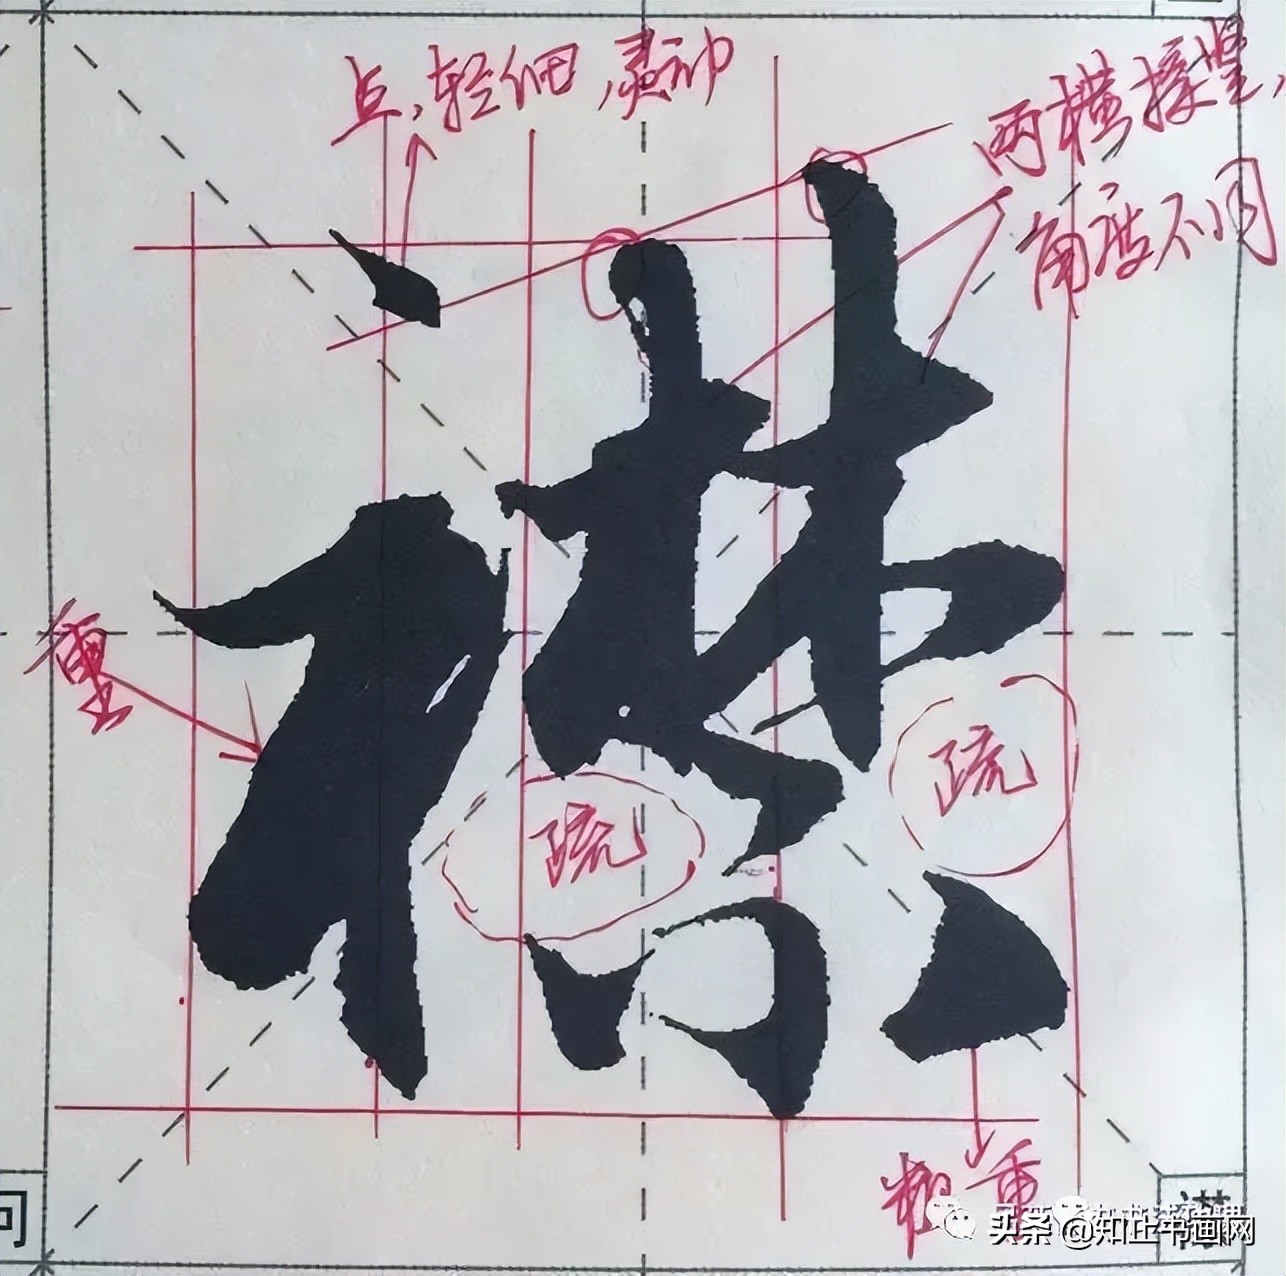 点,轻细,灵动
两横接竖,
角度不同
襟
重
疏
疏
粗重
头条 @知止书画网